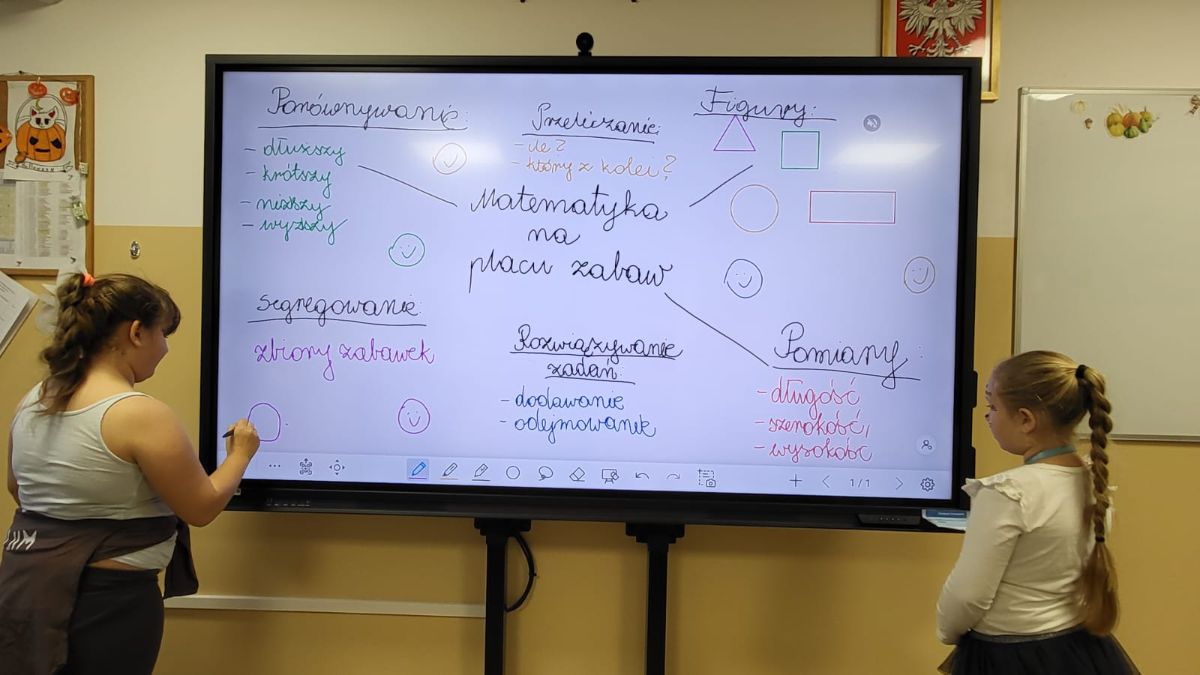 Porównywanie:
- dłuższy
- krótszy
- niższy
- wyższy
Przeliczanie:
- ile?
- który z kolei?
Figury:
Matematyka
na
placu zabaw
segregowanie:
zbiory zabawek
Rozwiązywanie
zadań:
- dodawanie
- odejmowanie
Pomiary:
- długość
- szerokość,
- wysokość
1/1